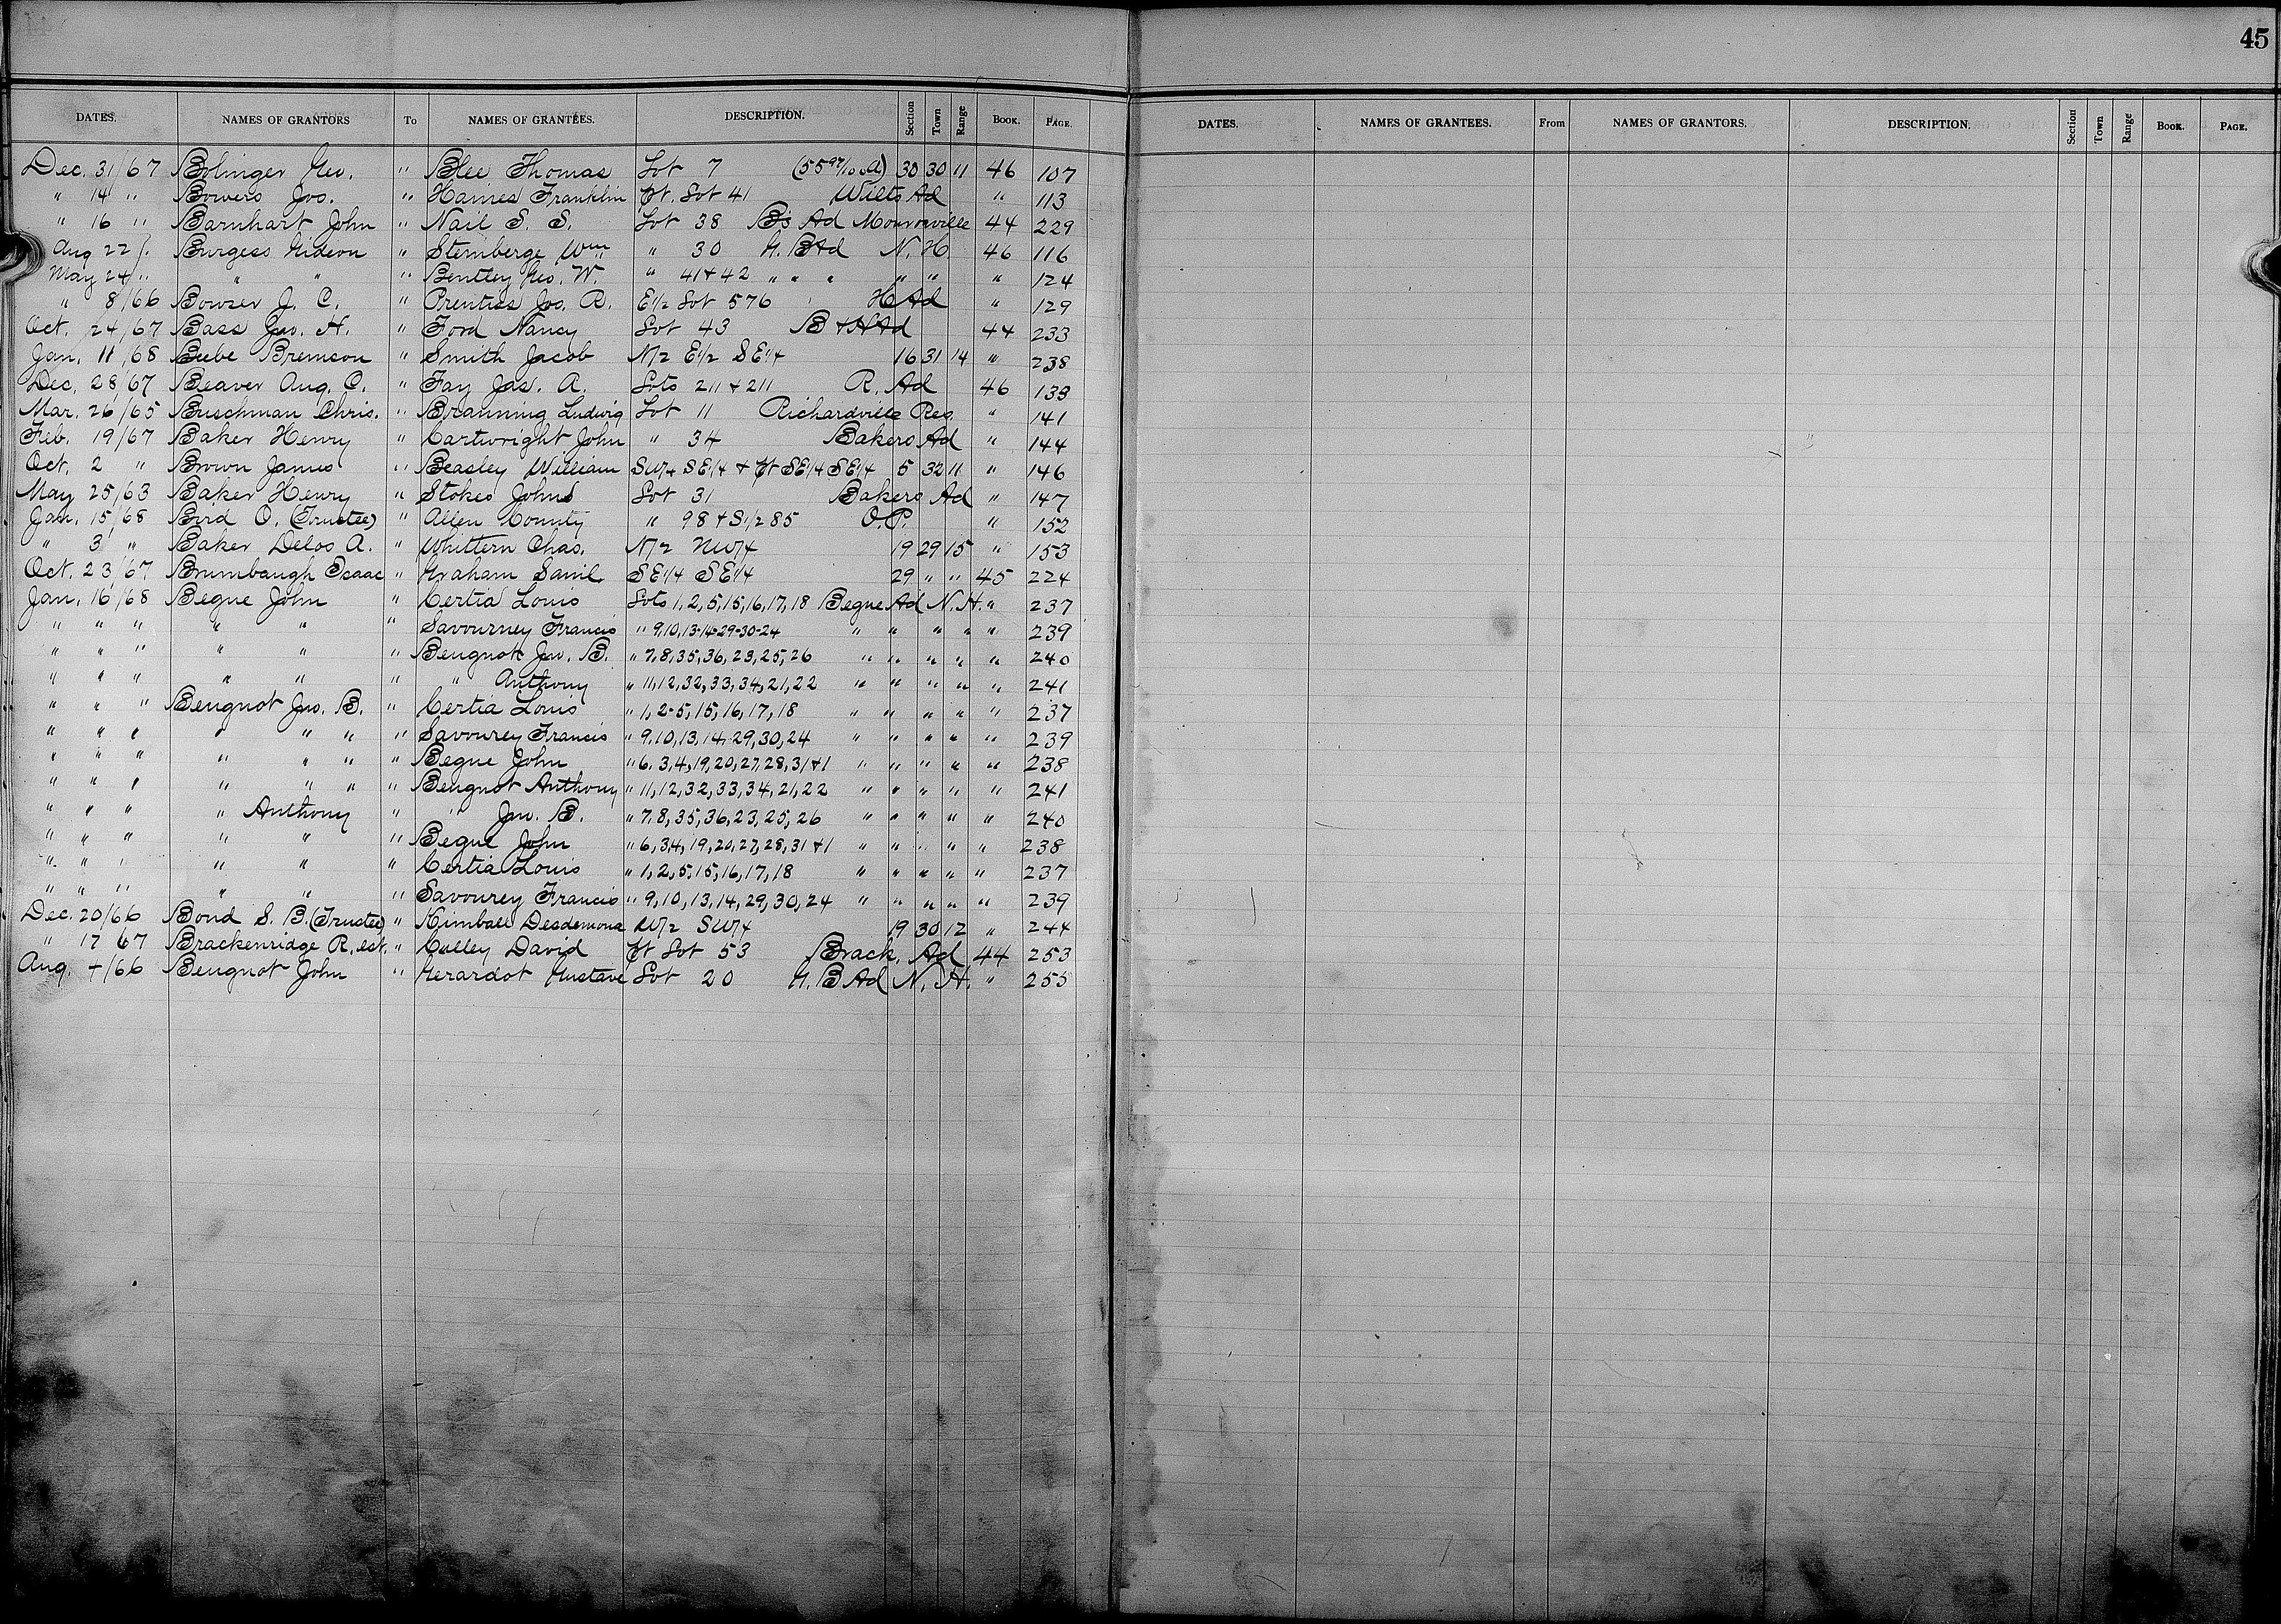 45
DATES. NAMES OF GRANTORS To NAMES OF GRANTEES. DESCRIPTION. Section Town Range BOOK. PAGE.
Dec. 31/67 Bolinger Geo. " Blee Thomas Lot 7 (55 97/100 A) 30 30 11 46 107
" 14 " Bowers Jos. " Haines Franklin Pt. Lot 41 Wilts Ad " 113
" 16 " Barnhart John " Nail S. S. Lot 38 Bs Ad Monroeville 44 229
Aug 22/. Burgess Gideon " Sternberge Wm " 30 G. B Ad N. H 46 116
May 24 " " " " Bentley Geo. W. " 41 & 42 " " " " " " 124
" 8/66 Bowser J. C. " Prentiss Jos. R. E1/2 Lot 576 H Ad " 129
Oct. 24/67 Bass Jno. H. " Ford Nancy Lot 43 B & H Ad 44 233
Jan. 11/68 Beebe Bremson " Smith Jacob N/2 E1/2 SE1/4 16 31 14 " 238
Dec. 28/67 Beaver Aug. C. " Fay Jas. A. Lots 211 & 211 R. Ad 46 139
Mar. 26/65 Buschman Chris. " Branning Ludwig Lot 11 Richardville Res. " 141
Feb. 19/67 Baker Henry " Cartwright John " 34 Bakers Ad " 144
Oct. 2 " Brown James " Beasley William SW/4 SE1/4 & Pt SE1/4 SE1/4 5 32 11 " 146
May 25/63 Baker Henry " Stokes John Lot 31 Bakers Ad " 147
Jan. 15/68 Bird O. (Trustee) " Allen County " 98 & S1/2 85 O.P. " 152
" 3 " Baker Delos A. " Whittern Chas. N/2 NW/4 19 29 15 " 153
Oct. 23/67 Brumbaugh Isaac " Graham Saml. SE1/4 SE1/4 29 " " 45 224
Jan. 16/68 Begue John " Certia Louis Lots 1, 2, 5, 15, 16, 17, 18 Begue Ad N. H. " 237
" " " " " " Savourney Francis " 9, 10, 13-14-29-30-24 " " " " " 239
" " " " " " Beugnot Jno. B. " 7, 8, 35, 36, 23, 25, 26 " " " " " 240
" " " " " " " Anthony " 11, 12, 32, 33, 34, 21, 22 " " " " " 241
" " " Beugnot Jno. B. " Certia Louis " 1, 2-5, 15, 16, 17, 18 " " " " " 237
" " " " " " " Savourey Francis " 9, 10, 13, 14, 29, 30, 24 " " " " " 239
" " " " " " " Begue John " 6, 3, 4, 19, 20, 27, 28, 31 & 1 " " " " " 238
" " " " " " " Beugnot Anthony " 11, 12, 32, 33, 34, 21, 22 " " " " " 241
" " " " Anthony " " Jno. B. " 7, 8, 35, 36, 23, 25, 26 " " " " " 240
" " " " " " Begue John " 6, 3, 4, 19, 20, 27, 28, 31 & 1 " " " " " 238
" " " " " " Certia Louis " 1, 2, 5, 15, 16, 17, 18 " " " " " 237
" " " " " " Savourey Francis " 9, 10, 13, 14, 29, 30, 24 " " " " " 239
Dec. 20/66 Bond S. B. (Trustee) " Kimball Desdemona W/2 SW/4 19 30 12 " 244
" 17 67 Brackenridge R. est. " Culley David Pt Lot 53 Brack. Ad 44 253
Aug. 4/66 Beugnot John " Gerardot Gustave Lot 20 G. B Ad N. H. " 255
DATES. NAMES OF GRANTEES. From NAMES OF GRANTORS. DESCRIPTION. Section Town Range BOOK. PAGE.